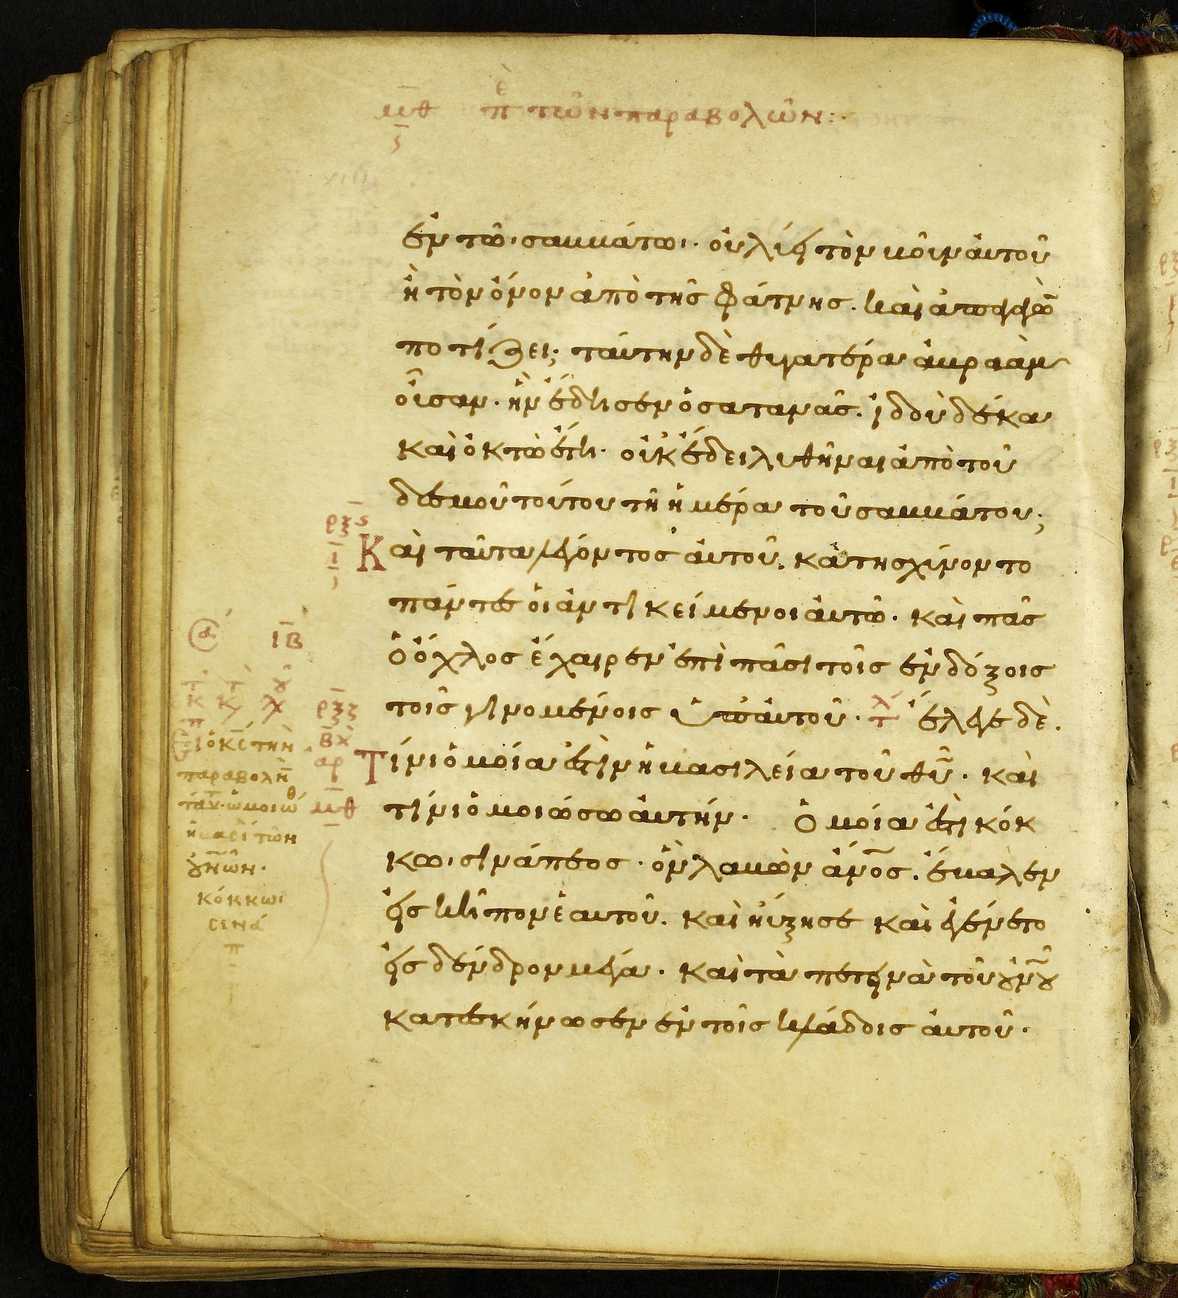 μθ περὶ τῶν παραβολῶν:·
ἐν τῶ σαββάτω· οὐ λύει τὸν βοῦν αὐτοῦ
ἢ τὸν ὄνον ἀπὸ τῆς φάτνης. καὶ ἀπαγαγὼν
ποτίζει; ταύτην δὲ θυγατέρα ἀβραὰμ
οὖσαν· ἣν ἔδησεν ὁ σατανᾶς. ἰδοὺ δέκα
καὶ ὀκτὼ ἔτη· οὐκ ἔδει λυθῆναι ἀπὸ τοῦ
δεσμοῦ τούτου τῆ ἡμέρα τοῦ σαββάτου;
ρξϛ
Καὶ ταῦτα λέγοντος αὐτοῦ. κατησχύνοντο
πάντες οἱ ἀντικείμενοι αὐτῶ. καὶ πᾶς
ὁ ὄχλος ἔχαιρεν ἐπὶ πᾶσι τοῖς ἐνδόξοις
τοῖς γινομένοις ὑπ' αὐτοῦ· ἔλεγε δὲ.
ρξζ
Τίνι ὁμοία ἐστὶν ἡ βασιλεία τοῦ θυ. καὶ
τίνι ὁμοιώσω αὐτήν· Ὁμοία ἐστὶ κόκ
κω σινάπεος· ὃν λαβὼν ἄνος. ἔβαλεν
εἰς κῆπον ἑαυτοῦ. καὶ ηὔξησε καὶ ἐγένετο
εἰς δένδρον μέγα. καὶ τὰ πετεινὰ τοῦ οὐνοῦ
κατεσκήνωσεν ἐν τοῖς κλάδοις αὐτοῦ·
ιβ
εἶπ ὁ κς τὴν
παραβολὴν
ταύτ· ὡμοιώθ
ἡ βασι τῶν
οὐνῶν·
κόκκωι
σινά
π
μθ